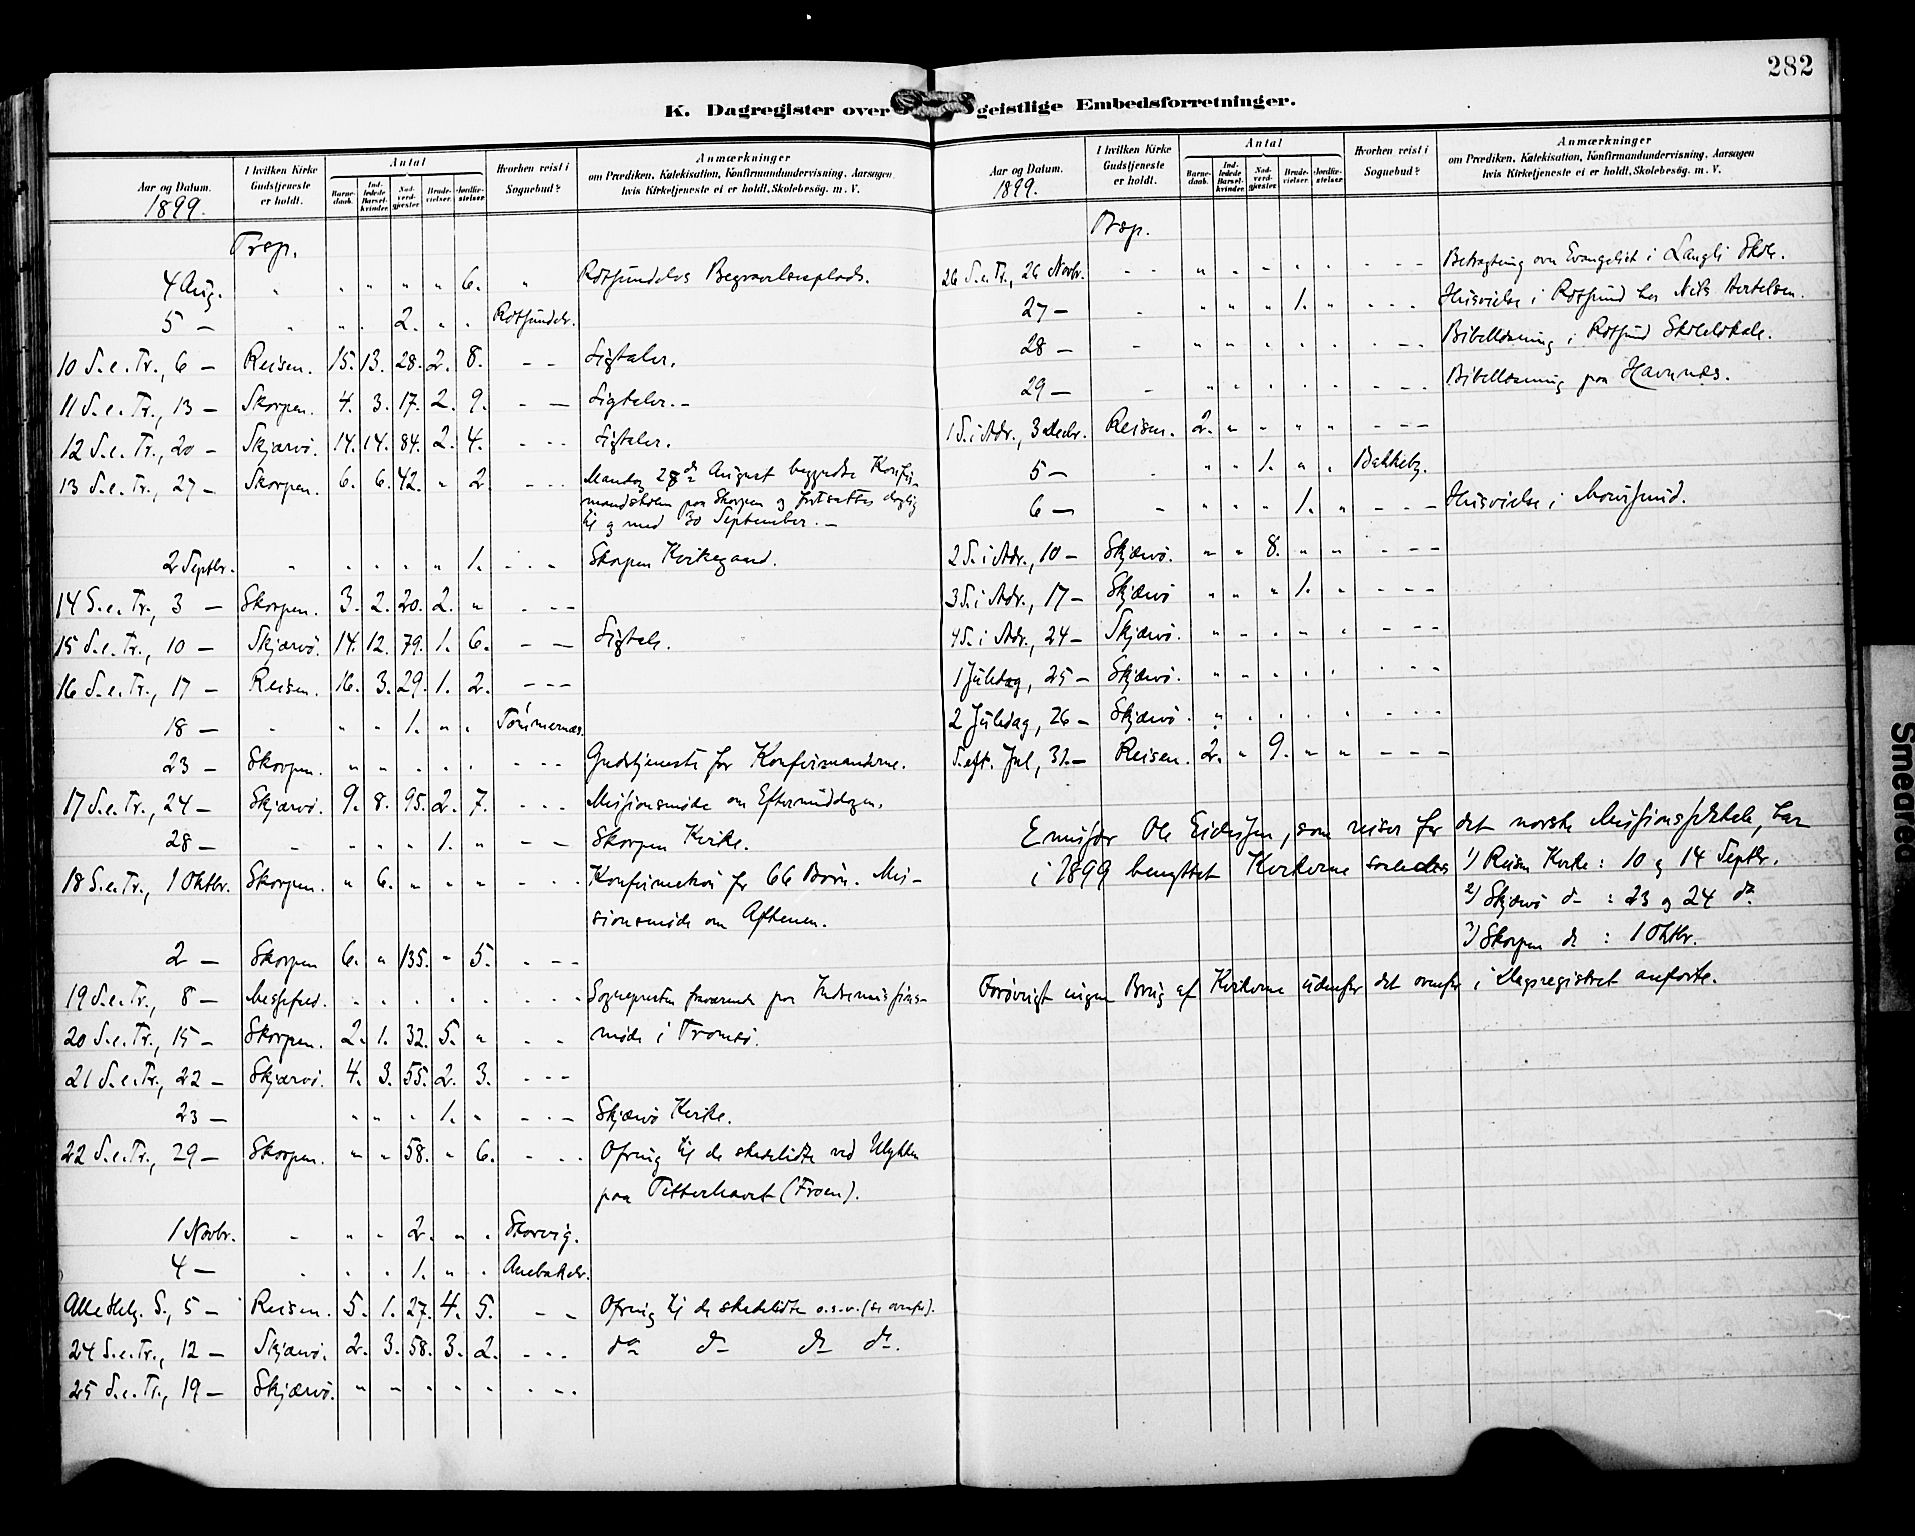 282
K. Dagregister over geistlige Embedsforretninger.
Aar og Datum. 1899.
I hvilken Kirke Gudstjeneste er holdt.
Antal
Barnedaab.
Indledede Barselkvinder.
Nadverdgjester
Brudevielser.
Jordfæstelser.
Hvorhen reist i Sognebud?
Anmærkninger
om Prædiken, Katekisation, Konfirmandundervisning, Aarsagen
hvis Kirketjeneste ei er holdt, Skolebesøg. m. V.
Trsp.
4 Aug. " " " " " 6. " Rotsundelvs Begravelsesplads.
5 — " " " 2. " " Rotsundelv.
10 S.e.Tr., 6 — Reisen. 15. 13. 28. 2. 8. - - Ligtaler.
11 S.e.Tr., 13 — Skorpen. 4. 3. 17. 2. 9. - — Ligtaler. -
12 S.e.Tr., 20 — Skjærvö. 14. 14. 84. 2. 4. - - - Ligtaler.
13 S.e.Tr., 27 — Skorpen. 6. 6. 42. " 2 - - - Mandag 28de August begyndte Konfir-
mandskolen paa Skorpen og fortsattes daglig
til og med 30 September. —
2 Septbr. - " " " " 1. - - - Skorpen Kirkegaard.
14 S.e.Tr., 3 — Skorpen. 3. 2. 20. 2. " - - -
15 S.e.Tr., 10 — Skjærvö. 14. 12. 79. 1. 6. - — Ligtale.
16 S.e.Tr., 17 — Reisen. 16. 3. 29. 1. 2. - - -
18 — - " " 1. " " Tömmernæs.
23 — Skorpen. " " " " " - - - Gudstjeneste for Konfirmanderne.
17 S.e.Tr., 24 — Skjærvö. 9. 8. 95. 2. 7. - - - Missionsmöde om Eftermiddagen.
28 — - " " " 1. " - — Skorpen Kirke.
18 S.e.Tr., 1 Oktbr. Skorpen. " 6. " " " - - - Konfirmation for 66 Börn. Mis-
sionsmöde om Aftenen.
2 — Skorpen 6. " 135. " 5. - - -
19 S.e.Tr., 8 — Messefald. " " " " " - - - Sognepresten fraværende paa Indremissions-
20 S.e.Tr., 15 — Skorpen. 2. 1. 32. 5. " - - möde i Tromsö.
21 S.e.Tr., 22 — Skjærvö. 4. 3. 55. 2. 3. - - -
23 — " " " 1. " - - - Skjærvö Kirke.
22 S.e.Tr., 29 — Skorpen. " " 58. " 6. - - - Ofring til de skadelidte ved Ulykken
paa Titterhavet (Froen).
1 Novbr. - " " 2. " " Storvig.
4 — - " " 1. " "
Alle Helg. S., 5 — Reisen. 5. 1. 27. 4. 5. - - Ofring til de skadelidte o.s.v. (se ovenfor).
24 S.e.Tr., 12 — Skjærvö. 2. 3. 58. 3. 2. - - - do do do do.
25 S.e.Tr., 19 — Skjærvö. " " " " " - - -
Aar og Datum. 1899.
I hvilken Kirke Gudstjeneste er holdt.
Antal
Barnedaab.
Indledede Barselkvinder.
Nadverdgjester
Brudevielser.
Jordfæstelser.
Hvorhen reist i Sognebud?
Anmærkninger
om Prædiken, Katekisation, Konfirmandundervisning, Aarsagen
hvis Kirketjeneste ei er holdt, Skolebesøg. m. V.
Trsp.
26 S.e.Tr., 26 Novbr. - - " " " " " - - - Betragtning over Evangeliet i Langli Skole.
27 — - " " " 1. " - - - Husvielse i Rotsund hos Nils Bertelsen.
28 — - " " " " " - - - Bibellæsning i Rotsund Skolelokale.
29 — - " " " " " - - - Bibellæsning paa Havnnæs.
1 S. i Adv., 3 Decbr. Reisen. 2. " " " " - - -
5 — - " " 1. " " Bakkeby.
6 — - " " " 1. " - - - Husvielse i Maursund.
2 S. i Adv., 10 — Skjærvö. " " 8. " " - - -
3 S. i Adv., 17 — Skjærvö " " " 1. " - - -
4 S. i Adv., 24 — Skjærvö. " " " " " - - -
1 Juledag, 25 — Skjærvö. " " " " " - - -
2 Juledag, 26 — Skjærvö. " " " " " - - -
S. eft. Jul, 31. — Reisen. 2. " 9. " " - - -
Emissær Ole Eidissen, som reiser for det norske Missionsselskab, har
i 1899 benyttet Kirkerne saaledes 1) Reisen Kirke: 10 og 14 Septbr.
2) Skjærvö do : 23 og 24 do
3) Skorpen do : 1 Oktbr.
Forövrigt ingen Brug af Kirkerne udenfor det ovenfor i Dagregistret anförte.
Smøred